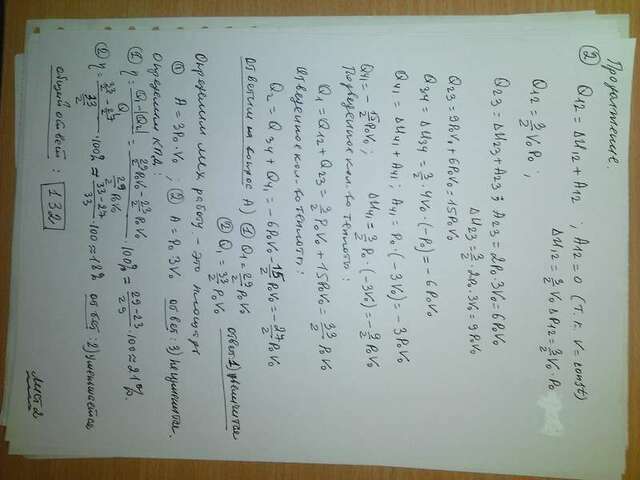 Продолжение.
② Q12 = ΔU12 + A12 ; A12 = 0 (т.к. V = const)
ΔU12 = 3/2 V0 ΔP12 = 3/2 V0 · P0
Q12 = 3/2 V0P0 ;
Q23 = ΔU23 + A23 ; A23 = 2P0 · 3V0 = 6P0V0
ΔU23 = 3/2 · 2P0 · 3V0 = 9P0V0
Q23 = 9P0V0 + 6P0V0 = 15P0V0
Q34 = ΔU34 = 3/2 · 4V0 · (-P0) = -6P0V0
Q41 = ΔU41 + A41 ; A41 = P0 · (-3V0) = -3P0V0
ΔU41 = 3/2 P0 · (-3V0) = -9/2 P0V0
Q41 = -15/2 P0V0 ;
Подведенное кол-во теплоты:
Q1 = Q12 + Q23 = 3/2 P0V0 + 15P0V0 = 33/2 P0V0
Отведенное кол-во теплоты:
Q2 = Q34 + Q41 = -6P0V0 - 15/2 P0V0 = -27/2 P0V0
Ответим на вопрос А) ① Q1 = 29/2 P0V0
② Q1 = 33/2 P0V0 ответ: 1) увеличится
Определим мех работу - это площадь
① A = 3P0 · V0 ; ② A = P0 3V0 ответ: 3) не изменится.
Определим КПД:
① η = Q1-|Q2| / Q1 = 29/2 P0V0 - 23/2 P0V0 / 29/2 P0V0 · 100% = 29-23 / 29 · 100 ≈ 21%.
② η = 33/2 - 27/2 / 33/2 · 100% ≈ 33-27 / 33 · 100 ≈ 18% ответ: 2) уменьшается
общий ответ: 132
лист 2